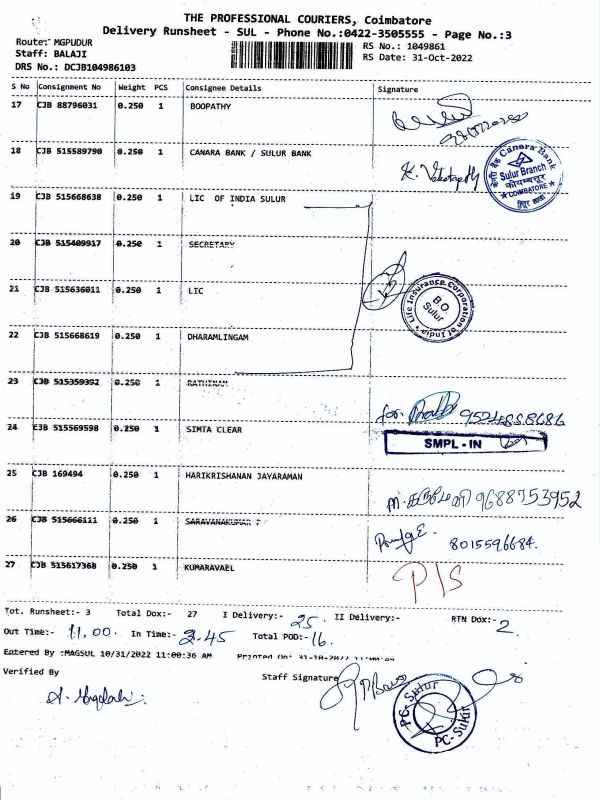 THE PROFESSIONAL COURIERS, Coimbatore
Delivery Runsheet - SUL - Phone No.:0422-3505555 - Page No.:3
Route: MGPUDUR
RS No.: 1049861
Staff: BALAJI
RS Date: 31-Oct-2022
DRS No.: DCJB104986103
S No Consignment No Weight PCS Consignee Details Signature
17 CJB 88796031 0.250 1 BOOPATHY
18 CJB 515589790 0.250 1 CANARA BANK / SULUR BANK
Canara Bank
Sulur Branch
कोयम्बत्तूर
COIMBATORE
19 CJB 515668638 0.250 1 LIC OF INDIA SULUR
20 CJB 515409917 0.250 1 SECRETARY
21 CJB 515636011 0.250 1 LIC
Life Insurance Corporation of India
B.O
Sulur
22 CJB 515668619 0.250 1 DHARAMLINGAM
23 CJB 515359392 0.250 1 RATHINAM
for.
24 CJB 515569598 0.250 1 SIMTA CLEAR
SMPL - IN
25 CJB 169494 1 HARIKRISHANAN JAYARAMAN
9688753952
26 CJB 515666111 0.250 1 SARAVANAKUMAR P
8015596684.
27 CJB 515617368 0.250 1 KUMARAVAEL
P/S
Tot. Runsheet:- 3 Total Dox:- 27 I Delivery:- 25 II Delivery:- RTN Dox:- 2
Out Time:- 11.00. In Time:- 2.45 Total POD:- 16
Entered By :MAGSUL 10/31/2022 11:00:36 AM Printed On:
Verified By
Staff Signature
PC-Sulur
PC-Sulur